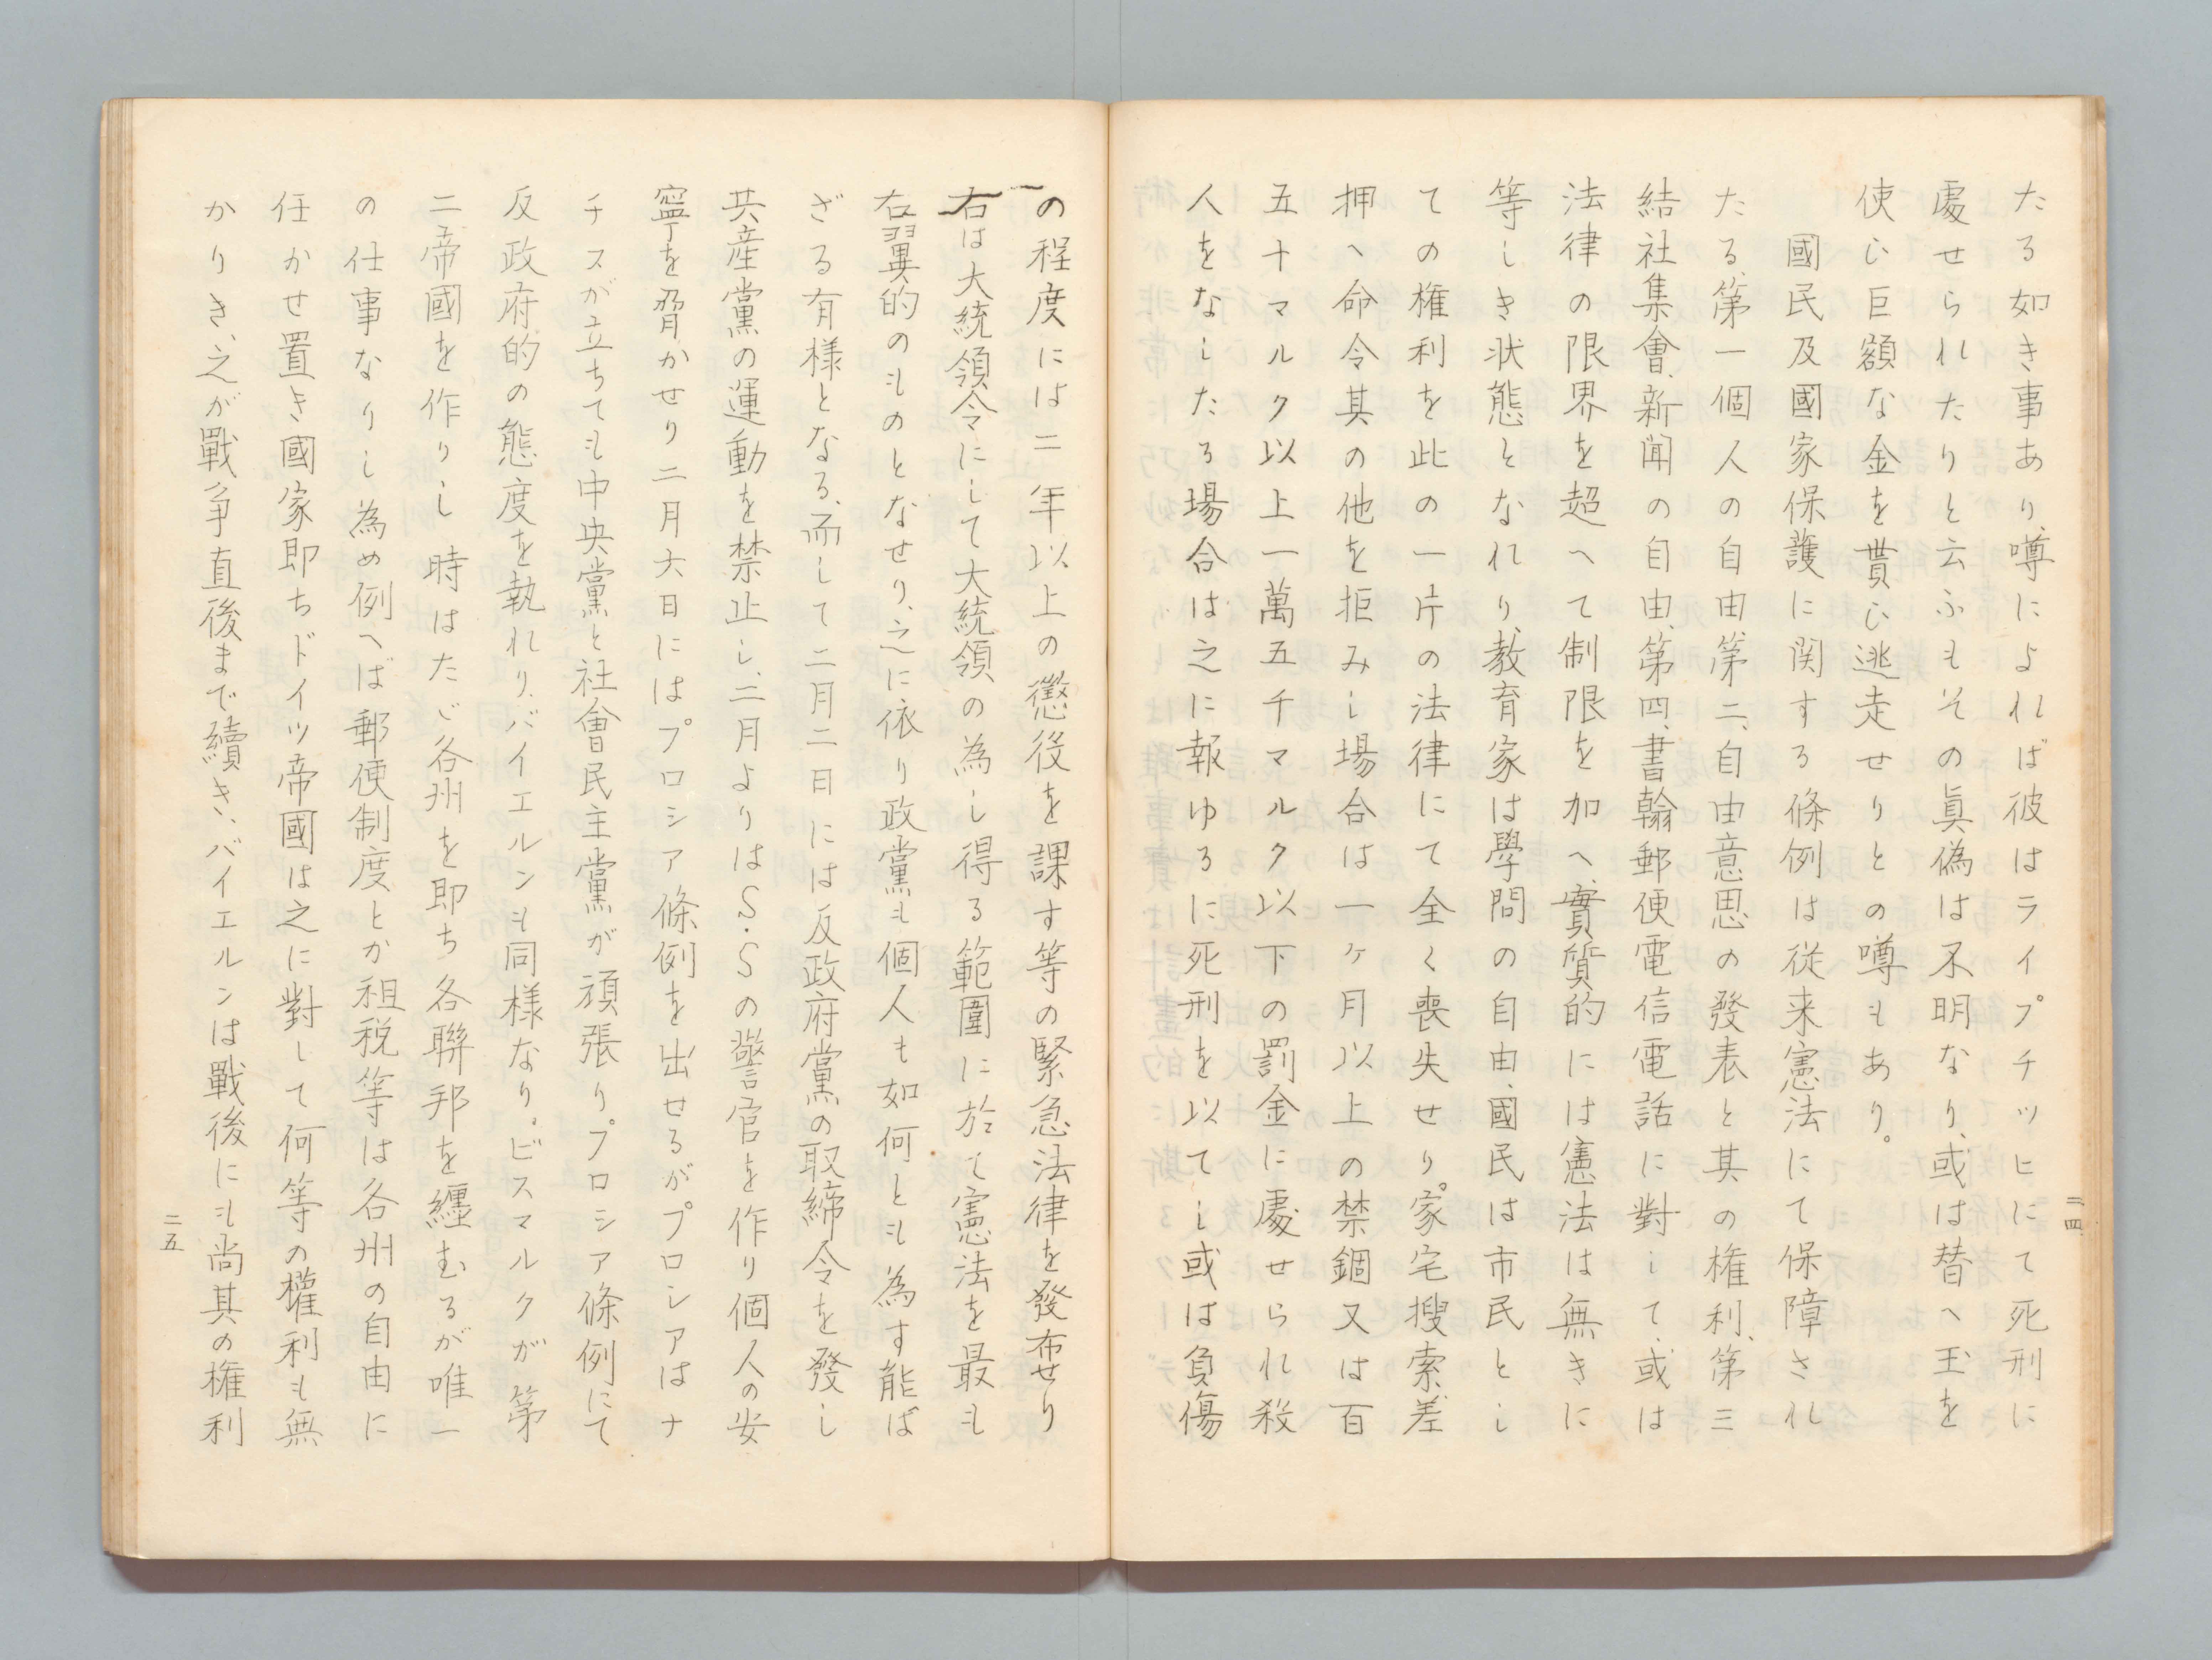 たる如き事あり、噂によれば彼はライプチッヒにて死刑に
處せられたりと云ふもその眞偽は不明なり、或は替へ玉を
使ひ巨額な金を貰ひ逃走せりとの噂もあり。
國民及國家保護に関する條例は従来憲法にて保障され
たる、第一個人の自由、第二、自由意思の發表と其の権利、第三
結社集會、新聞の自由、第四、書翰郵便電信電話に對して、或は
法律の限界を超へて制限を加へ、實質的には憲法は無きに
等しき状態となれり、教育家は學問の自由、國民は市民とし
ての権利を此の一片の法律にて全く喪失せり。家宅搜索差
押へ命令其の他を拒みし場合は一ヶ月以上の禁錮又は百
五十マルク以上一萬五千マルク以下の罰金に處せられ殺
人をなしたる場合は之に報ゆるに死刑を以てし或は負傷
二四
の程度には二年以上の懲役を課す等の緊急法律を發布せり
右は大統領令にして大統領の為し得る範圍に於て憲法を最も
右翼的のものとなせり、之に依り政黨も個人も如何とも為す能は
ざる有様となる、而して二月二日には反政府黨の取締令を發し
共産黨の運動を禁止し、二月よりはS.Sの警官を作り個人の安
寧を脅かせり二月六日にはプロシア條例を出せるがプロシアはナ
チスが立ちても中央黨と社會民主黨が頑張り。プロシア條例にて
反政府的の態度を執れり、バイエルンも同様なり。ビスマルクが第
二帝國を作りし時はたゞ各州を即ち各聯邦を纒むるが唯一
の仕事なりし為め例へば郵便制度とか祖税等は各州の自由に
任かせ置き國家即ちドイツ帝國は之に對して何等の權利も無
かりき、之が戰争直後まで續き、バイエルンは戰後にも尚其の権利
二五